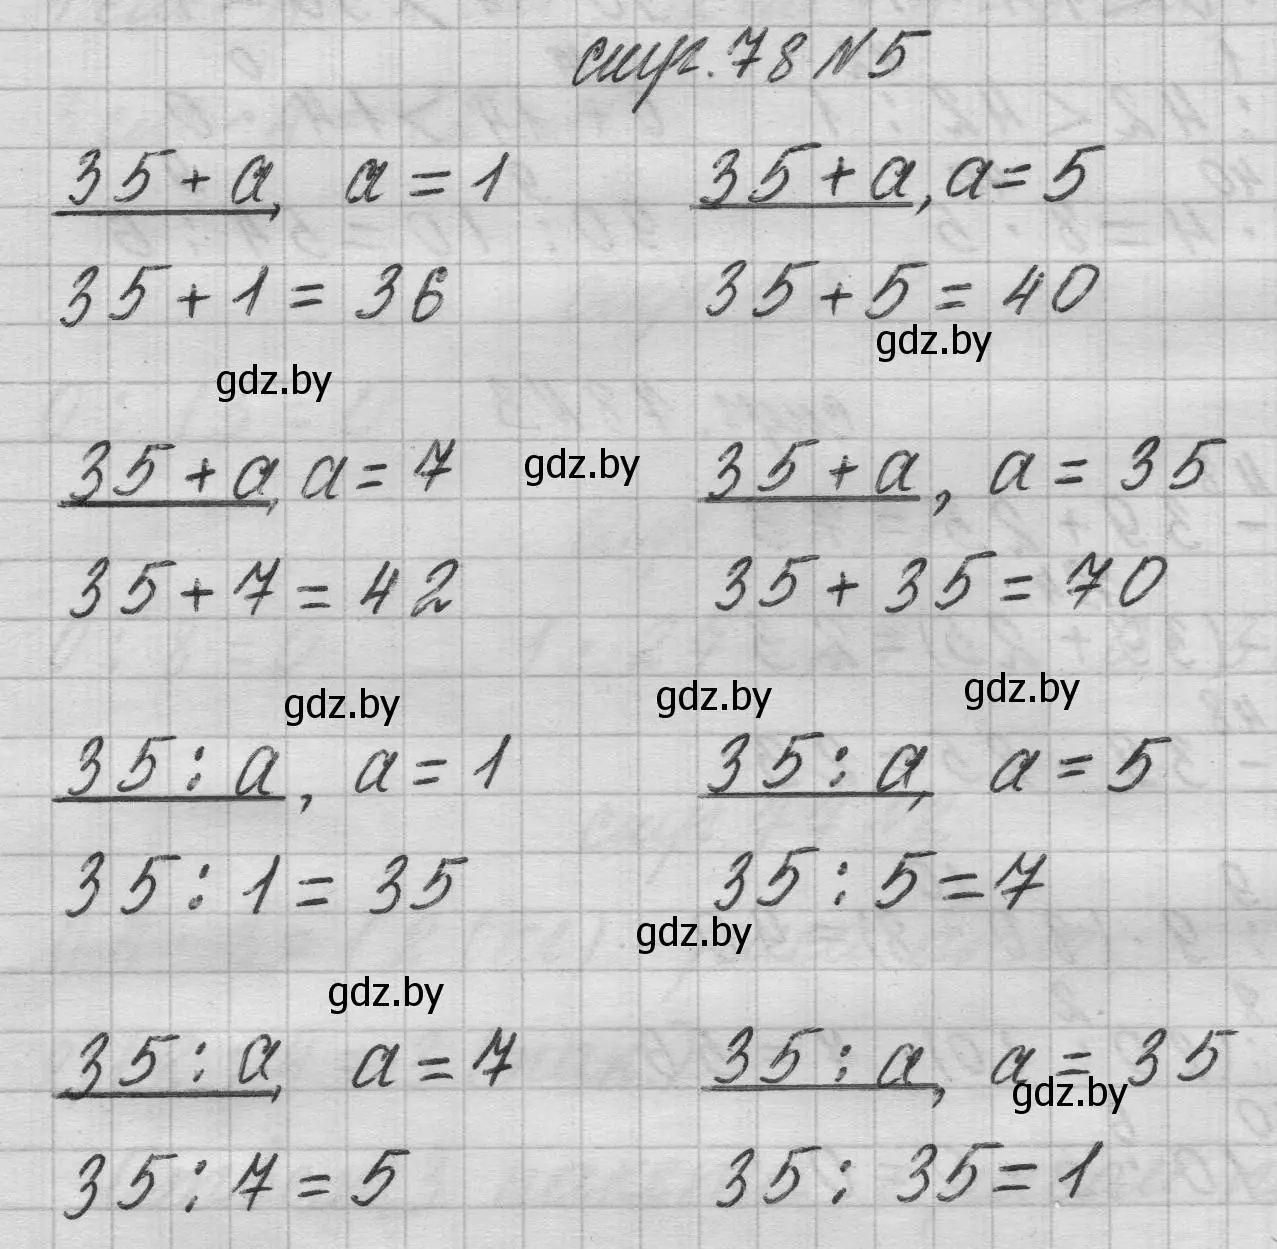 стр. 78 № 5
35 + а, а = 1
35 + а, а = 5
35 + 1 = 36
35 + 5 = 40
gdz.by
gdz.by
35 + а, а = 7
gdz.by
35 + а, а = 35
35 + 7 = 42
35 + 35 = 70
gdz.by
gdz.by
gdz.by
35 : а, а = 1
35 : а, а = 5
35 : 1 = 35
35 : 5 = 7
gdz.by
gdz.by
35 : а, а = 7
35 : а, а = 35
gdz.by
35 : 7 = 5
35 : 35 = 1